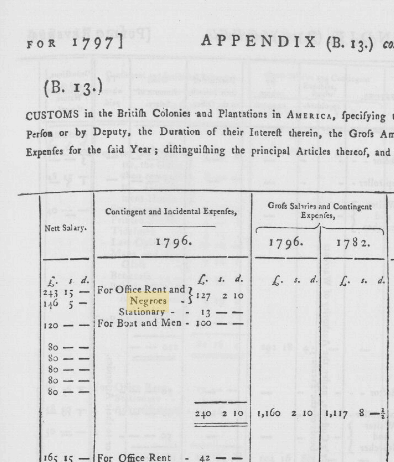 FOR 1797] APPENDIX (B. 13.) co
(B. 13.)
CUSTOMS in the Britiſh Colonies and Plantations in AMERICA, ſpecifying
Perſon or by Deputy, the Duration of their Intereſt therein, the Groſs Am
Expenſes for the ſaid Year; diſtinguiſhing the principal Articles thereof, and
Nett Salary. Contingent and Incidental Expenſes, Groſs Salaries and Contingent
Expenſes,
1796. 1796. 1782.
£. s. d. £. s. d. £. s. d. £. s. d.
243 15 — For Office Rent and
146 5 — Negroes - } 127 2 10
Stationary - - 13 — —
120 — — For Boat and Men - 100 — —
80 — —
80 — —
80 — —
80 — —
80 — —
240 2 10 1,160 2 10 1,117 8 — ½
165 15 — For Office Rent - 42 — —